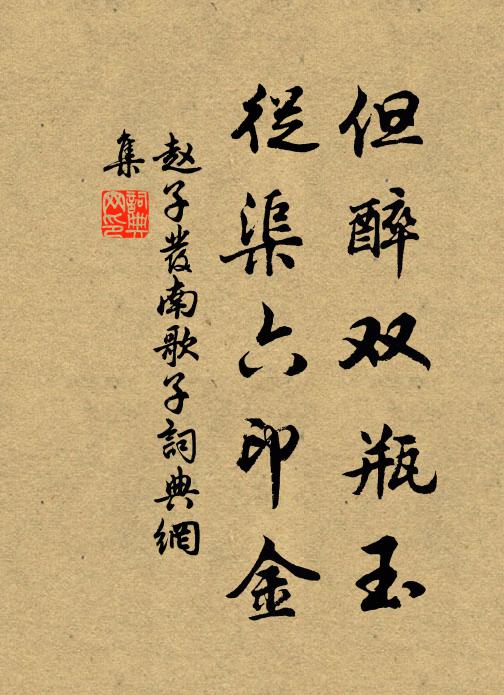 但醉双瓶玉
從渠六印金
赵子發南歌子詞典網
集
詞典
网印